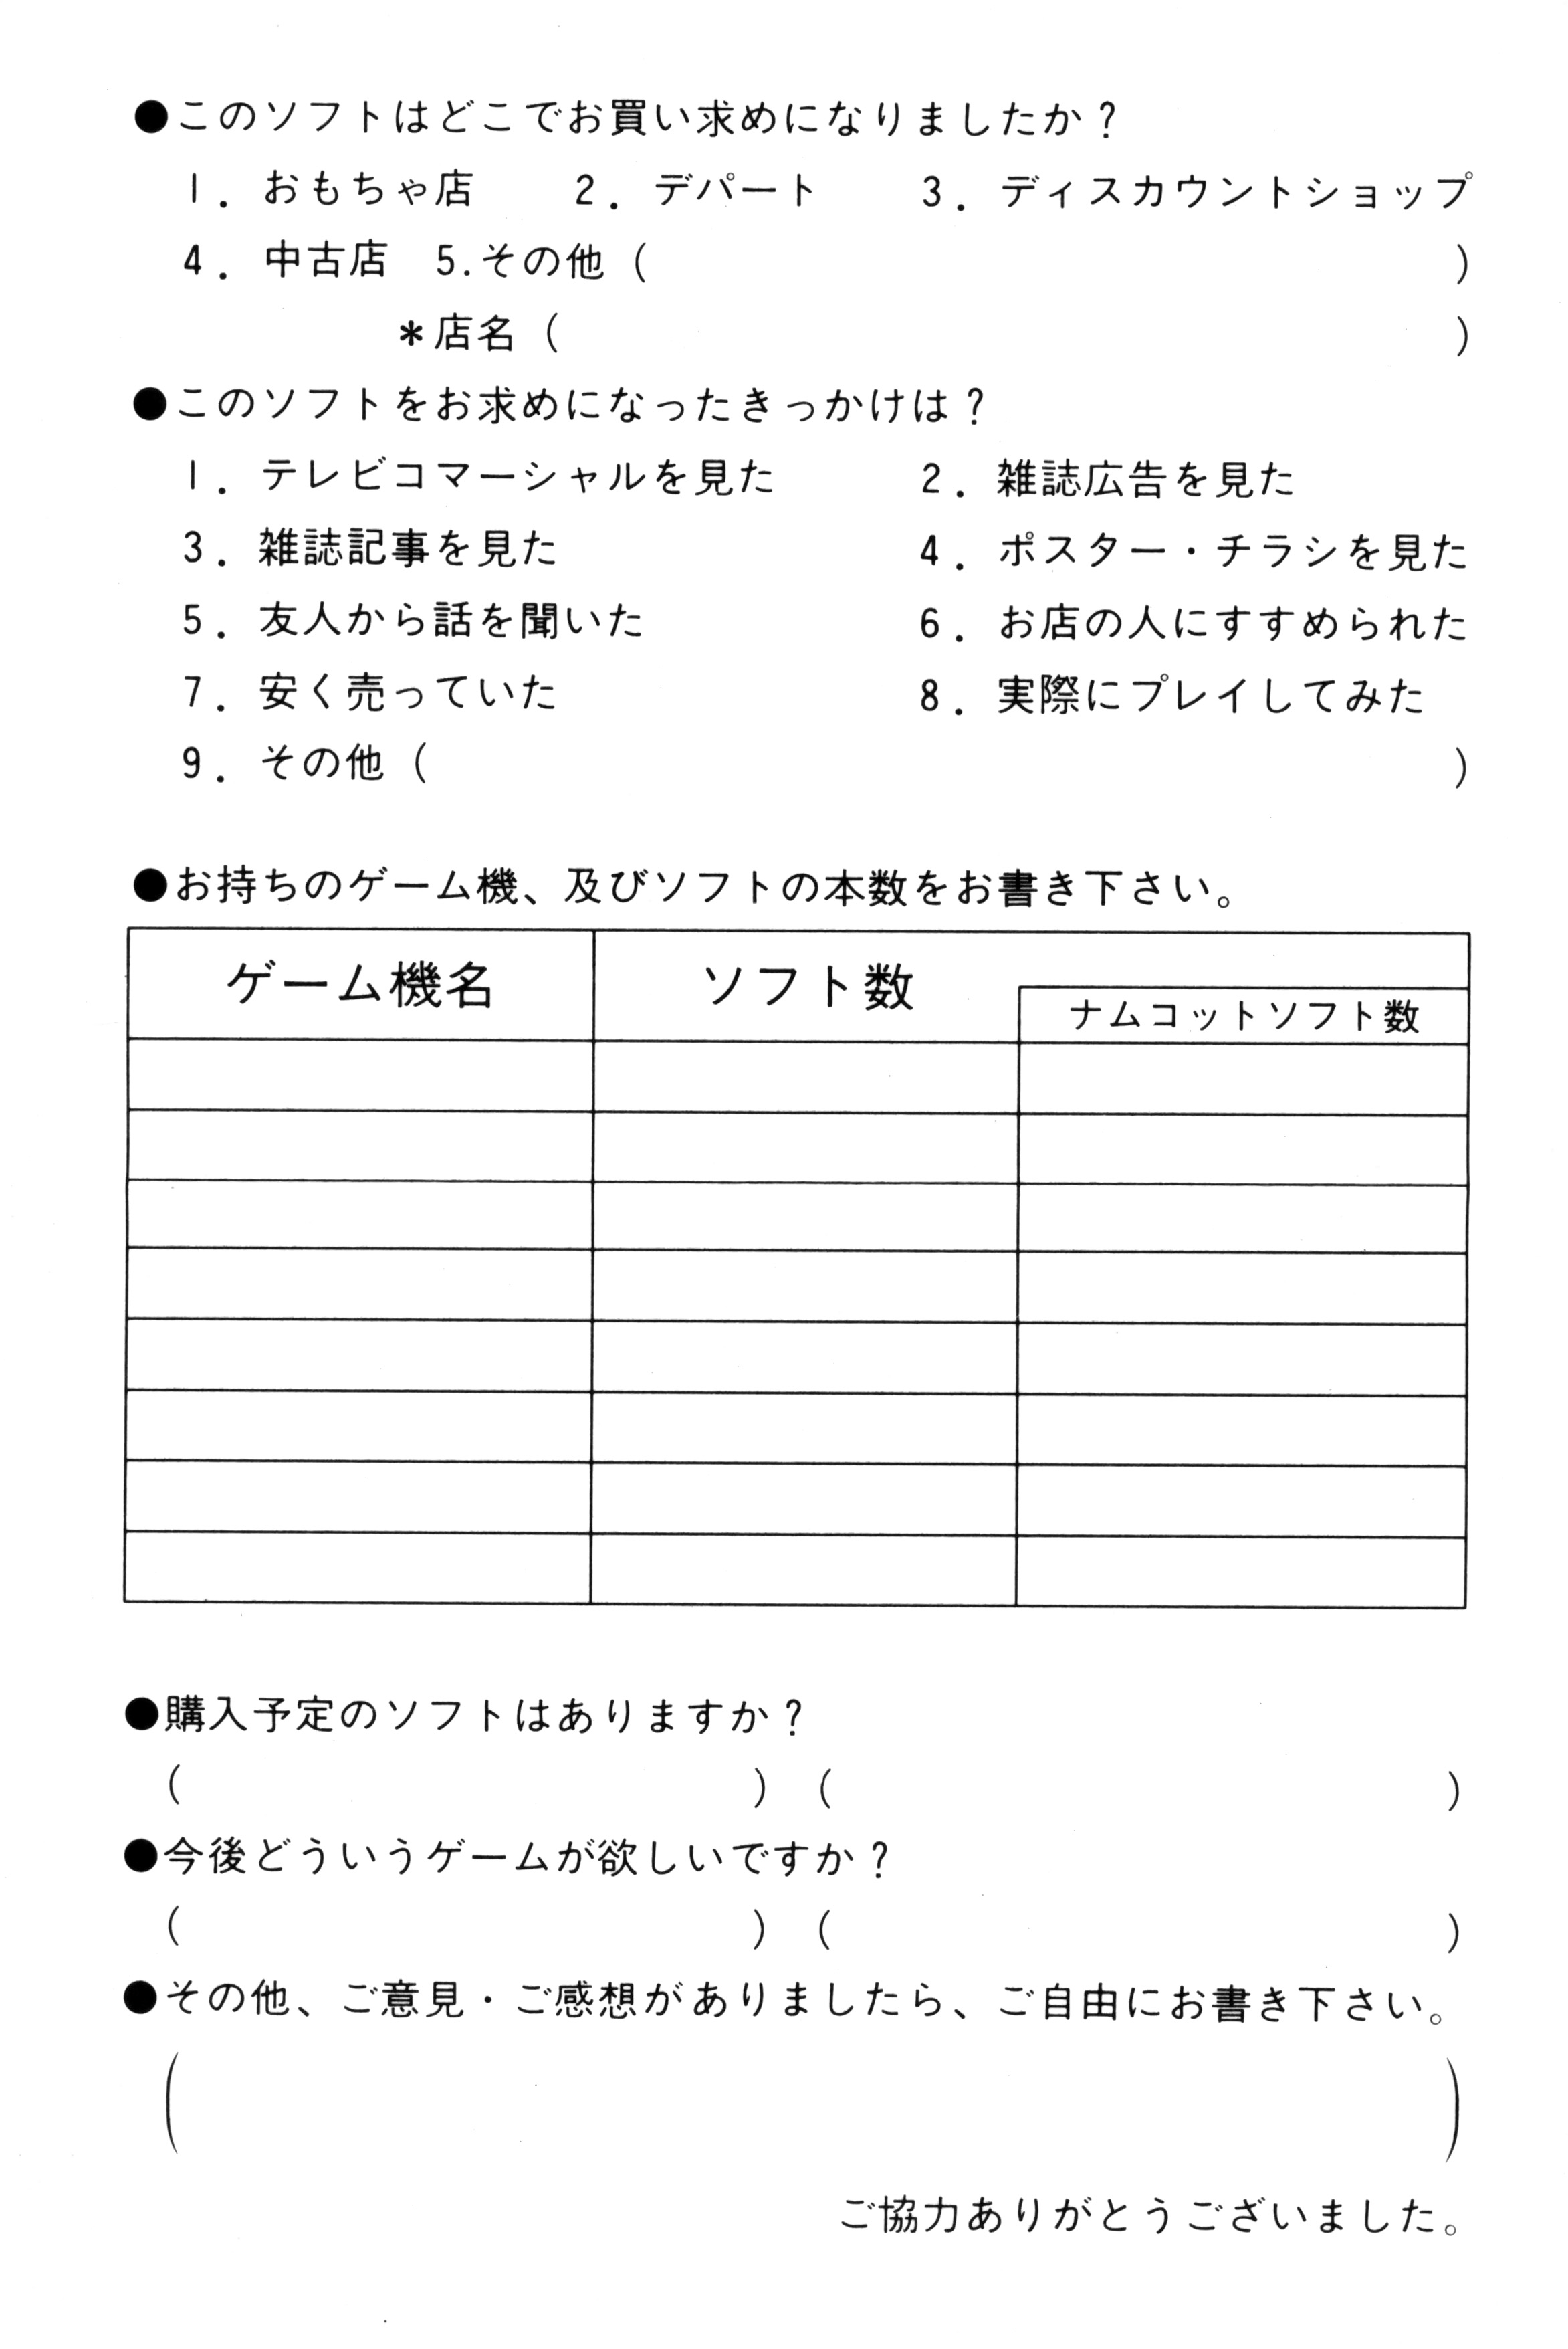 ●このソフトはどこでお買い求めになりましたか？
1．おもちゃ店　2．デパート　3．ディスカウントショップ
4．中古店　5.その他（　　　）
＊店名（　　　）
●このソフトをお求めになったきっかけは？
1．テレビコマーシャルを見た　2．雑誌広告を見た
3．雑誌記事を見た　4．ポスター・チラシを見た
5．友人から話を聞いた　6．お店の人にすすめられた
7．安く売っていた　8．実際にプレイしてみた
9．その他（　　　）
●お持ちのゲーム機、及びソフトの本数をお書き下さい。
ゲーム機名　ソフト数
ナムコットソフト数
●購入予定のソフトはありますか？
（　　　）（　　　）
●今後どういうゲームが欲しいですか？
（　　　）（　　　）
●その他、ご意見・ご感想がありましたら、ご自由にお書き下さい。
（　　　）
ご協力ありがとうございました。